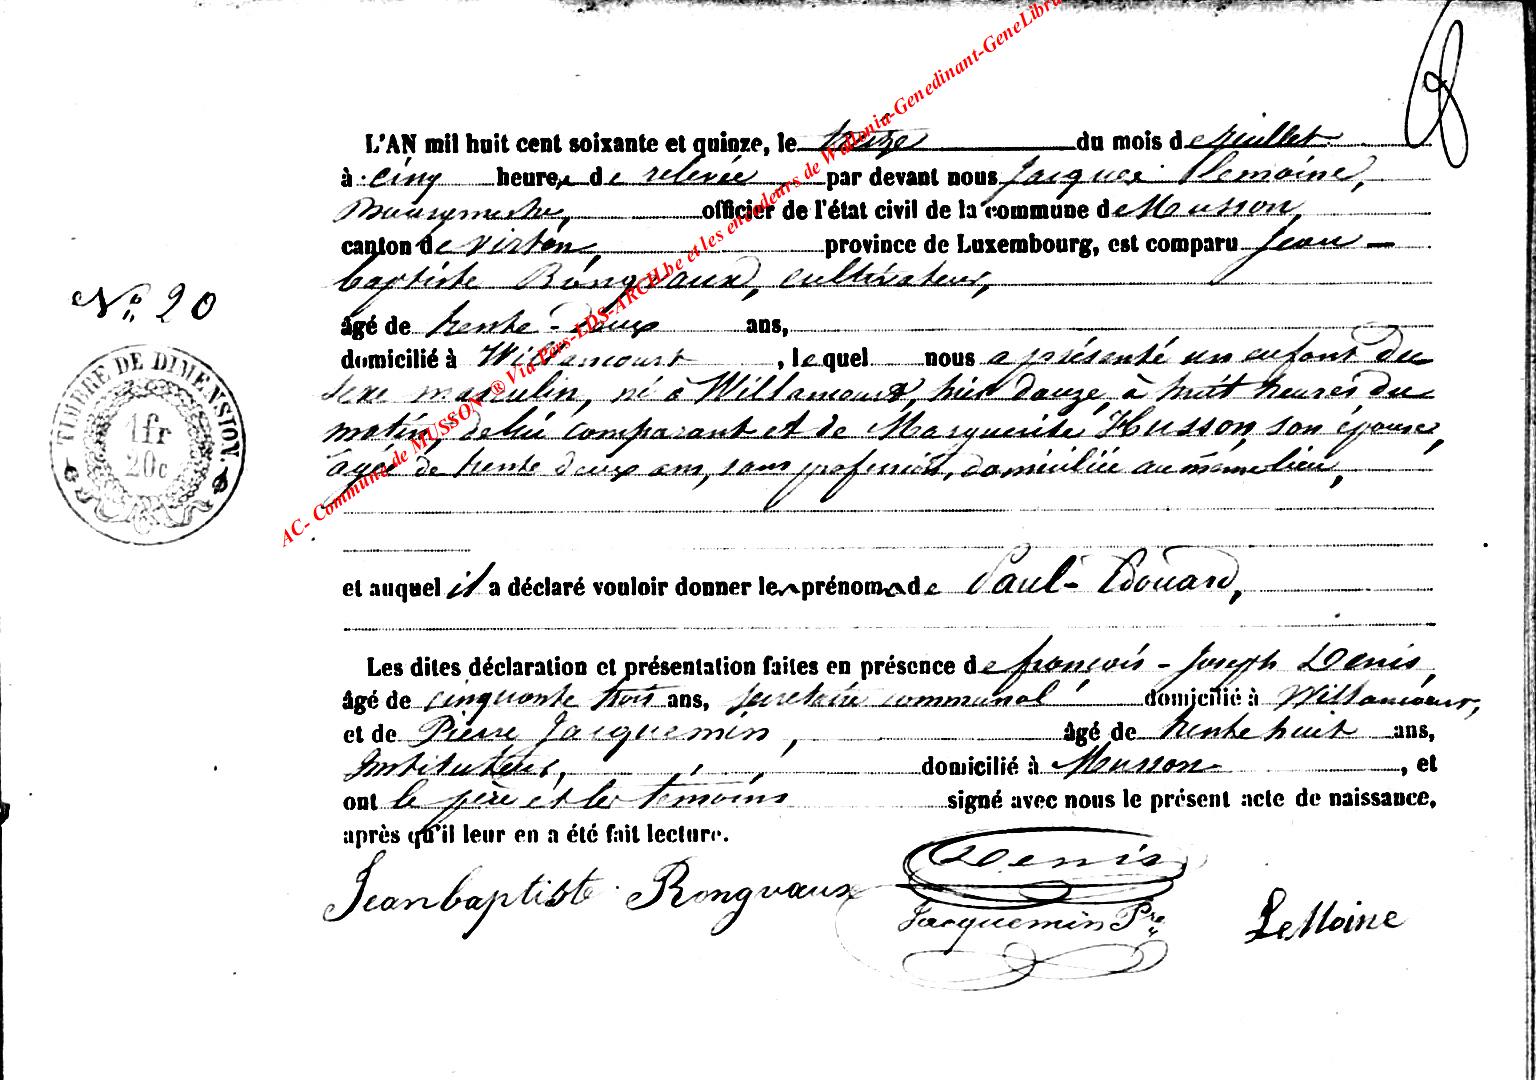 L'AN mil huit cent soixante et quinze, le treize du mois de juillet
à cinq heures de relevée par devant nous Jacques Lemoine,
Bourgmestre, officier de l'état civil de la commune de Musson,
canton de Virton, province de Luxembourg, est comparu Jean -
baptiste Rongvaux, cultivateur,
N° 20
âgé de trente-deux ans,
domicilié à Willancourt, lequel nous a présenté un enfant du
sexe masculin, né à Willancourt, hier douze, à huit heures du
matin, de lui comparant et de Marguerite Husson, son épouse,
âgée de trente deux ans, sans profession, domiciliée au même lieu,
TIMBRE DE DIMENSION
1 fr
20c
et auquel il a déclaré vouloir donner les prénoms de Paul-Edouard,
Les dites déclaration et présentation faites en présence de françois-Joseph Denis,
âgé de cinquante trois ans, secretaire communal domicilié à Willancourt,
et de Pierre Jacquemin, âgé de trente huit ans,
Instituteur, domicilié à Musson, et
ont le père et les témoins signé avec nous le présent acte de naissance,
après qu'il leur en a été fait lecture.
Jeanbaptiste Rongvaux
Denis
Jacquemin Pre
LeMoine
AC- Commune de MUSSON ® Via Pers-LDS-ARCH.be et les encodeurs de Wallonia-Genedinant-GeneLibr